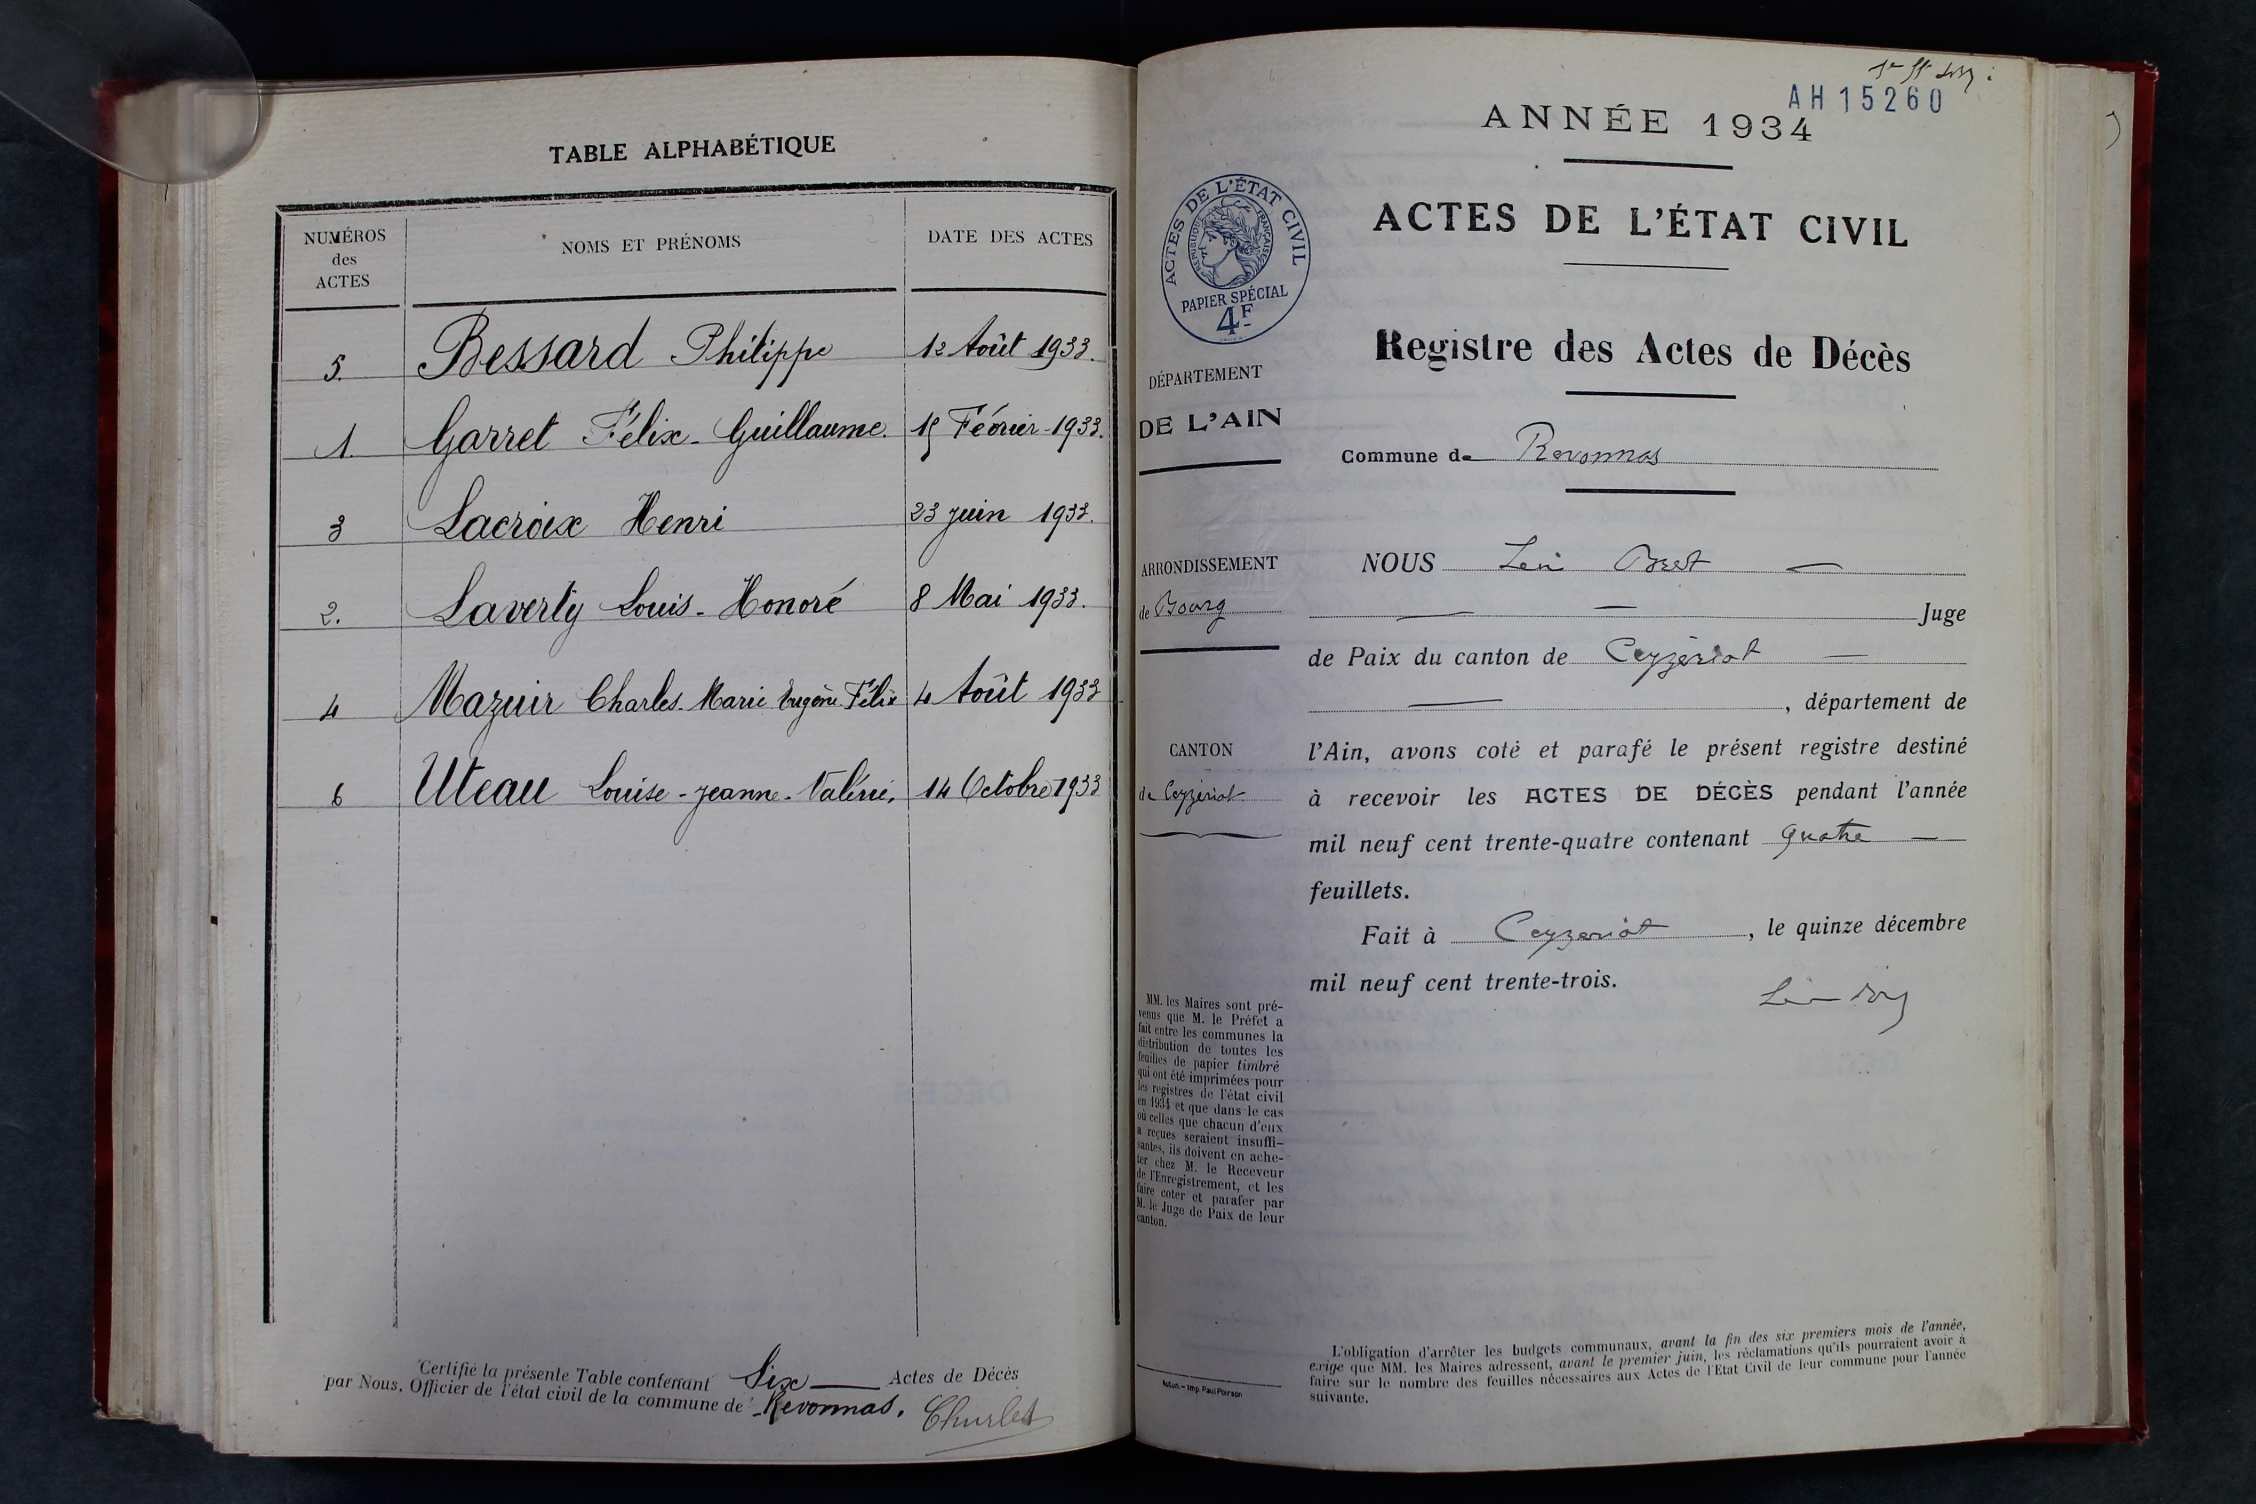 TABLE ALPHABÉTIQUE
NUMÉROS
des
ACTES
NOMS ET PRÉNOMS
DATE DES ACTES
5. Bessard Philippe 12 Août 1933.
1. Garret Félix-Guillaume. 15 Février-1933.
3 Lacroix Henri 23 juin 1933.
2. Laverty Louis-Honoré 8 Mai 1933.
4 Mazuir Charles-Marie Eugène Félix 4 Août 1933
6 Uteau Louise-jeanne-Valérie. 14 Octobre 1933
Certifié la présente Table contenant Six Actes de Décès
par Nous, Officier de l'état civil de la commune de Revonnas.
AH15260
ANNÉE 1934
ACTES DE L'ÉTAT CIVIL
ACTES DE L'ÉTAT CIVIL
RÉPUBLIQUE FRANÇAISE
PAPIER SPÉCIAL
4F
Registre des Actes de Décès
DÉPARTEMENT
DE L'AIN
Commune de Revonnas
ARRONDISSEMENT
de Bourg
CANTON
de Ceyzériat
NOUS
Juge
de Paix du canton de Ceyzériat
, département de
l'Ain, avons coté et parafé le présent registre destiné
à recevoir les ACTES DE DÉCÈS pendant l'année
mil neuf cent trente-quatre contenant quatre
feuillets.
Fait à Ceyzériat, le quinze décembre
mil neuf cent trente-trois.
MM. les Maires sont pré-
venus que M. le Préfet a
fait entre les communes la
distribution de toutes les
feuilles de papier timbré
qui ont été imprimées pour
les registres de l'état civil
en 1934 et que dans le cas
où celles que chacun d'eux
a reçues seraient insuffi-
santes, ils doivent en ache-
ter chez M. le Receveur
de l'Enregistrement, et les
faire coter et parafer par
M. le Juge de Paix de leur
canton.
L'obligation d'arrêter les budgets communaux, avant la fin des six premiers mois de l'année,
exige que MM. les Maires adressent, avant le premier juin, les réclamations qu'ils pourraient avoir à
faire sur le nombre des feuilles nécessaires aux Actes de l'Etat Civil de leur commune pour l'année
suivante.